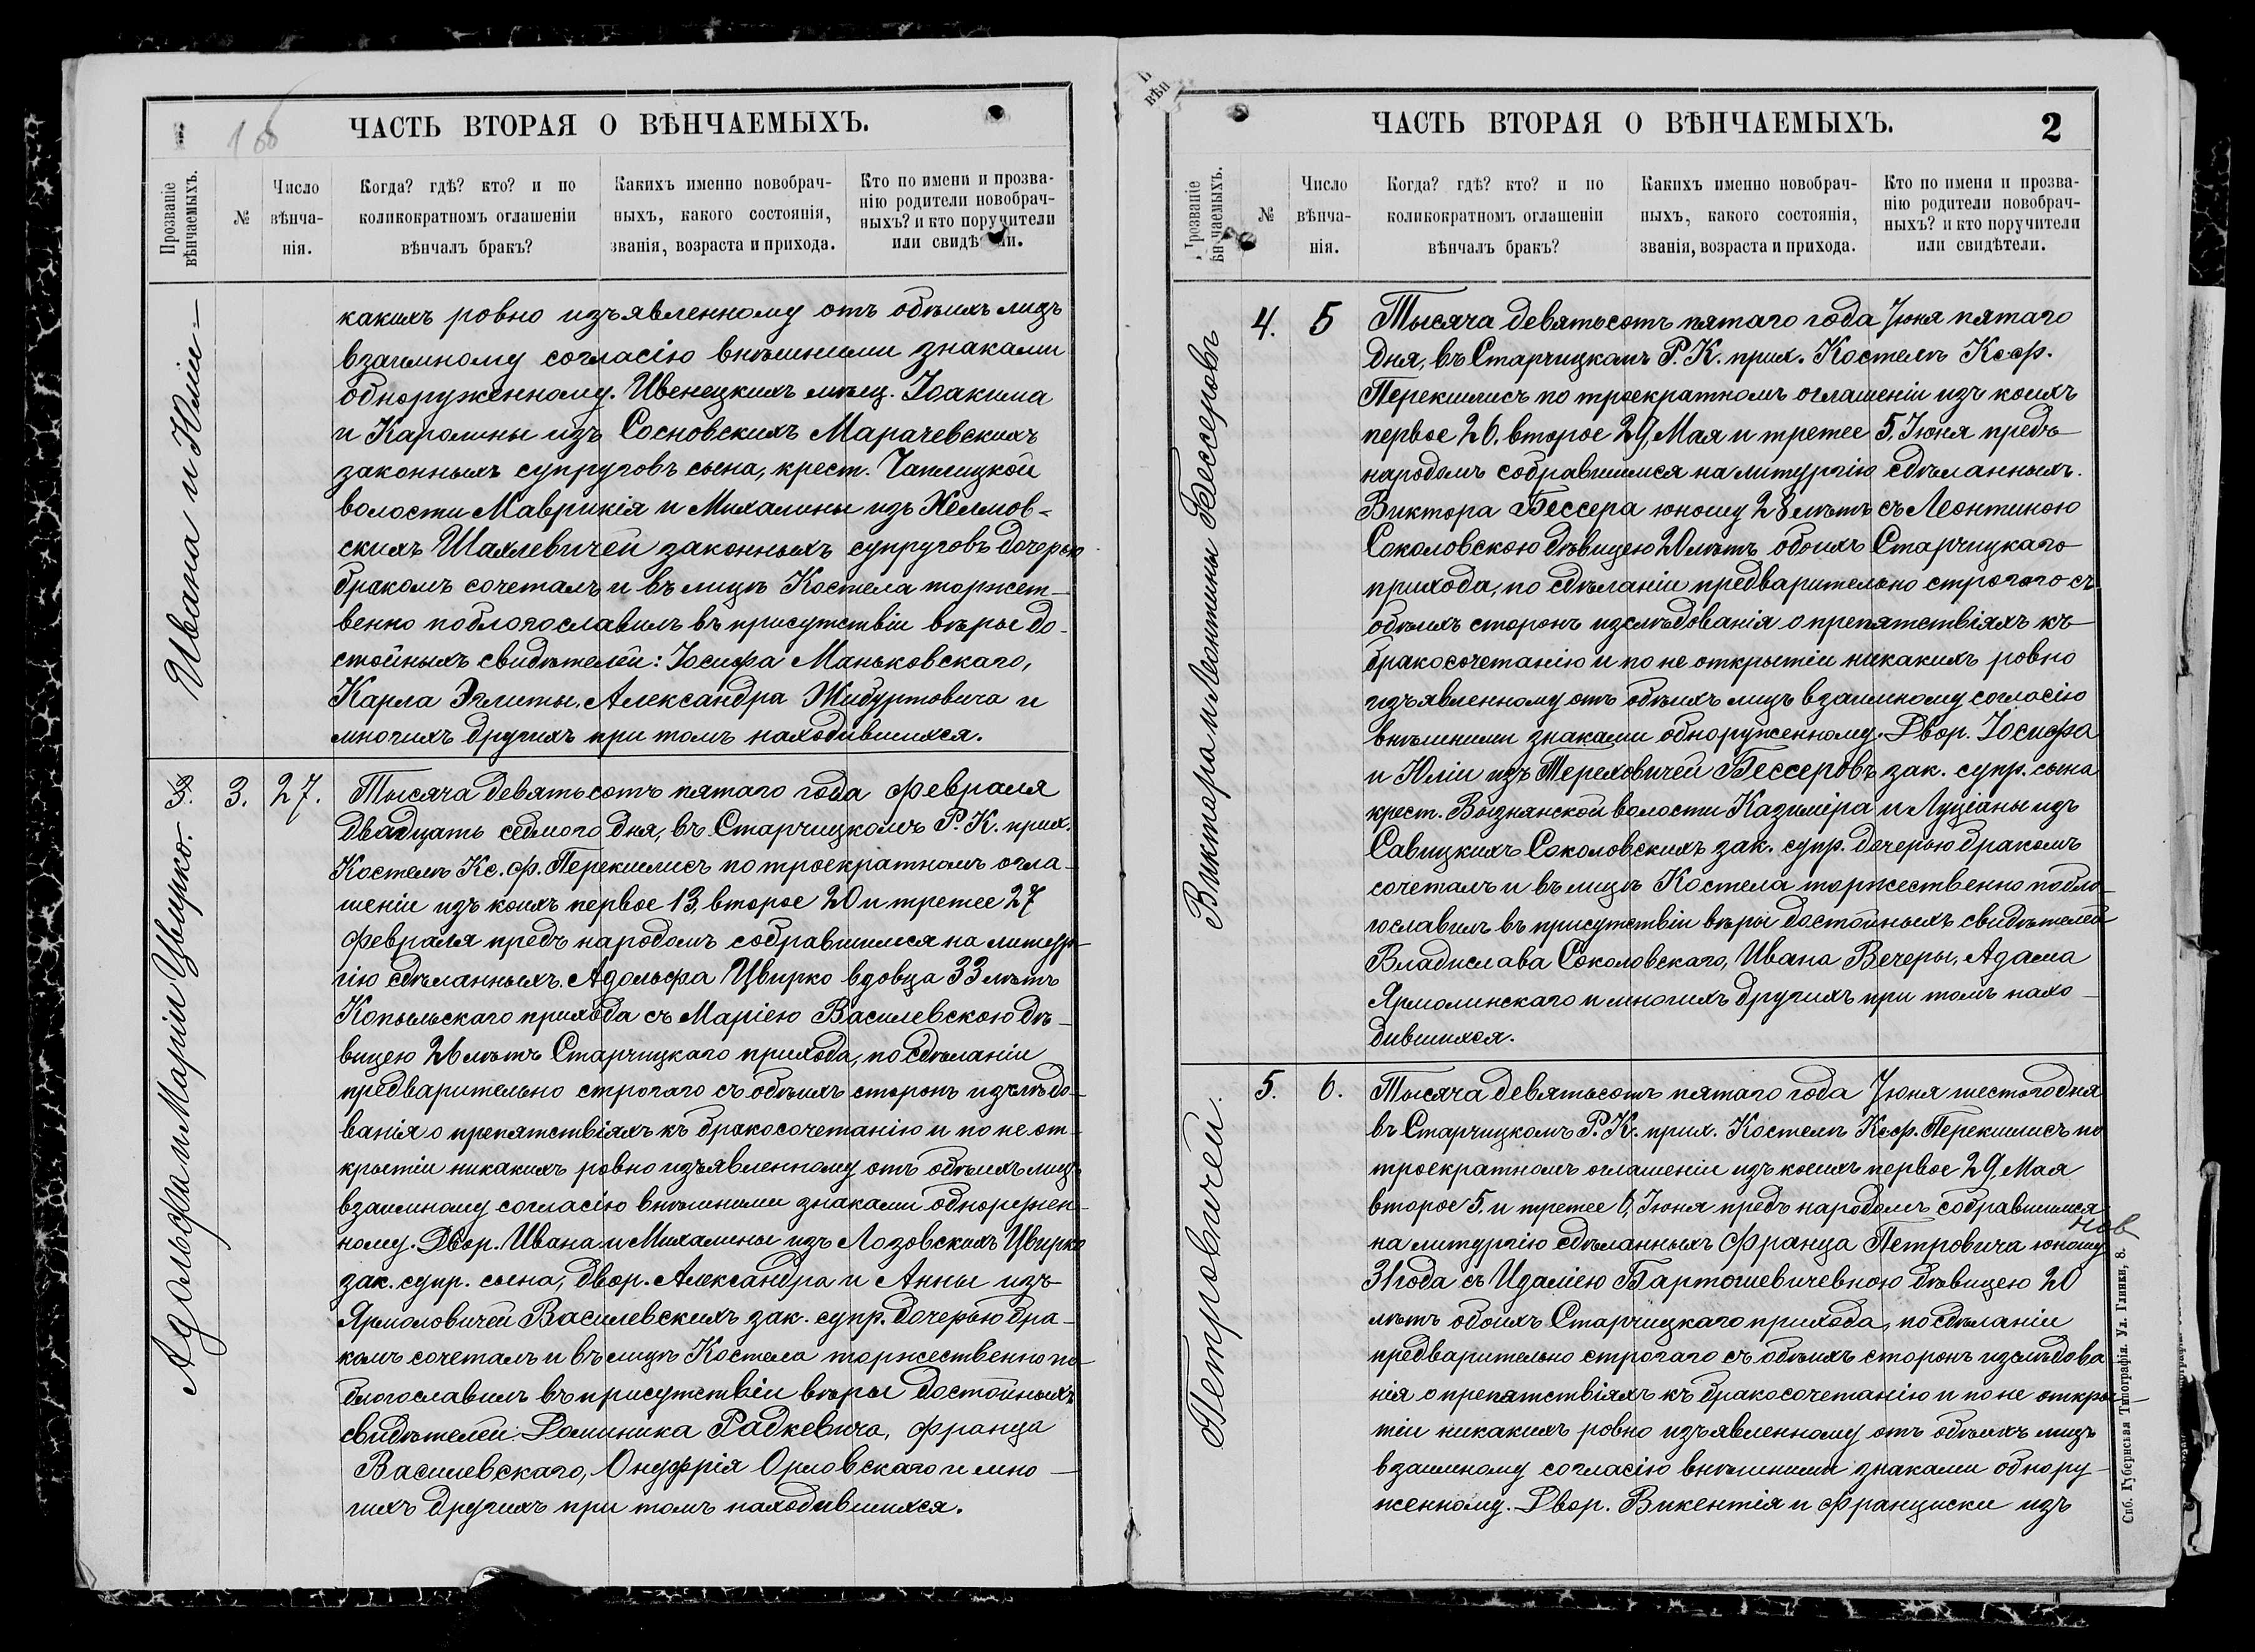 ЧАСТЬ ВТОРАЯ О ВѢНЧАЕМЫХЪ.
Прозваніе вѣнчаемыхъ.
№
Число вѣнча-нія.
Когда? гдѣ? кто? и по
коликократномъ оглашеніи
вѣнчалъ бракъ?
Какихъ именно новобрач-
ныхъ, какого состоянія,
званія, возраста и прихода.
Кто по имени и прозва-
нію родители новобрач-
ныхъ? и кто поручители
или
Ивана и Юліи
какихъ ровно изъявленному отъ обѣихъ лицъ
взаимному согласію внѣшними знаками
обноруженному. Ивенецкихъ мѣщ. Іоакима
и Каролины изъ Сосновскихъ Марачевскихъ
законныхъ супруговъ сына, крест. Чаплицкой
волости Маврикія и Михалины изъ
скихъ законныхъ супруговъ дочерью
бракомъ сочеталъ и въ лицѣ Костела торжет-
венно поблогославилъ въ присутствіи вѣры до-
стойныхъ свидѣтелей: Іосифа Маньковскаго,
Карла Александра Жибуртовича и
многихъ другихъ при томъ находившихся.
Адольфа и Маріи Цвирко.
3. 27.
Тысяча девятьсотъ пятаго года февраля
двадцать седмого дня, въ Старчицкомъ Р. К. прих.
Костелѣ Кс. ф. Перекшлисъ по троекратномъ огла-
шеніи изъ коихъ первое 13, второе 20 и третее 27
февраля предъ народомъ собравшимся на литур-
гію сдѣланныхъ. Адольфа Цвирко вдовца 33 лѣтъ
Копыльскаго прихода съ Маріею Василевскою дѣ-
вицею 26 лѣтъ Старчицкаго прихода, по сдѣланіи
предварительно строгаго съ обѣихъ сторонъ изслѣдо-
ванія о препятствіяхъ къ бракосочетанію и по не от-
крытіи никакихъ ровно изъявленному отъ обѣихъ лицъ
взаимному согласію внѣшними знаками обноружен-
ному. Двор. Ивана и Михалины изъ Лозовскихъ Цвирко
зак. супр. сына, двор. Александра и Анны изъ
Ярмоловичей Василевскихъ зак. супр. дочерью бра-
комъ сочеталъ и въ лицѣ Костела торжественно по-
блогославилъ въ присутствіи вѣры достойныхъ
свидѣтелей: Доминика Радкевича, Франца
Василевскаго, Онуфрія Орловскаго и мно-
гихъ другихъ при томъ находившихся.
ЧАСТЬ ВТОРАЯ О ВѢНЧАЕМЫХЪ.
2
№
Число вѣнча-нія.
Когда? гдѣ? кто? и по
коликократномъ оглашеніи
вѣнчалъ бракъ?
Какихъ именно новобрач-
ныхъ, какого состоянія,
званія, возраста и прихода.
Кто по имени и прозва-
нію родители новобрач-
ныхъ? и кто поручители
или свидѣтели.
Виктора и Леонтины Бессеровъ
4. 5
Тысяча девятьсотъ пятаго года Іюня пятаго
дня, въ Старчицкомъ Р. К. прих. Костелѣ Кс. ф.
Перекшлисъ по троекратномъ оглашеніи изъ коихъ
первое 26, второе 29, Мая и третее 5, Іюня предъ
народомъ собравшимся на литургію сдѣланныхъ.
Виктора Бессера юношу 28 лѣтъ съ Леонтиною
Соколовскою дѣвицею 20 лѣтъ обоихъ Старчицкаго
прихода, по сдѣланіи предварительно строгаго съ
обѣихъ сторонъ изслѣдованія о препятствіяхъ къ
бракосочетанію и по не открытіи никакихъ ровно
изъявленному отъ обѣихъ лицъ взаимному согласію
внѣшними знаками обноруженному. Двор. Іосифа
и Юліи изъ Тереховичей Бессеровъ зак. супр. сына
крест. Вызнянской волости Казиміра и Луціаны изъ
Савицкихъ Соколовскихъ зак. супр. дочерью бракомъ
сочеталъ и въ лицѣ Костела торжественно побло-
гославилъ въ присутствіи вѣры достойныхъ свидѣтелей
Владислава Соколовскаго, Ивана Вечеры, Адама
Ярмолинскаго и многихъ другихъ при томъ нахо-
дившихся.
Петровичей.
5. 6.
Тысяча девятьсотъ пятаго года Іюня шестого дня
въ Старчицкомъ Р. К. прих. Костелѣ Кс. ф. Перекшлисъ по
троекратномъ оглашеніи изъ коихъ первое 29, Мая
второе 5, и третее 6, Іюня предъ народомъ собравшимся
на литургію сдѣланныхъ Франца Петровича юношу
31 года съ Идаліею Бартошевичевною дѣвицею 20
лѣтъ обоихъ Старчицкаго прихода, по сдѣланіи
предварительно строгаго съ обѣихъ сторонъ изслѣдова
нія о препятствіяхъ къ бракосочетанію и по не откры-
тіи никакихъ ровно изъявленному отъ обѣихъ лицъ
взаимному согласію внѣшними знаками обнору-
женному. Двор. Викентія и Франциски изъ
Спб. Губернская Типографія. Ул. Глинки, 8.